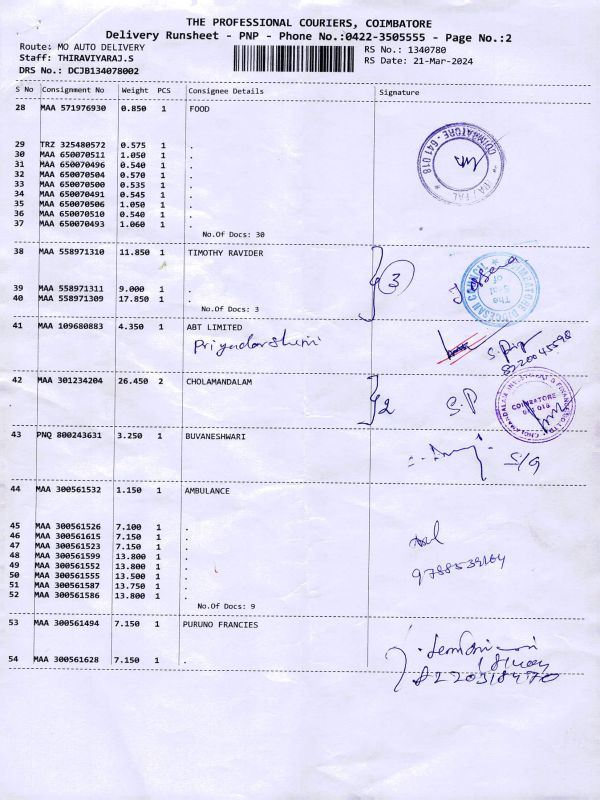 THE PROFESSIONAL COURIERS, COIMBATORE
Delivery Runsheet - PNP - Phone No.:0422-3505555 - Page No.:2
Route: MO AUTO DELIVERY RS No.: 1340780
Staff: THIRAVIYARAJ.S RS Date: 21-Mar-2024
DRS No.: DCJB134078002
S No Consignment No Weight PCS Consignee Details Signature
28 MAA 571976930 0.850 1 FOOD
COIMBATORE - 641 018
29 TRZ 325480572 0.575 1 .
30 MAA 650070511 1.050 1 .
31 MAA 650070496 0.540 1 .
32 MAA 650070504 0.570 1 .
33 MAA 650070500 0.535 1 .
34 MAA 650070491 0.545 1 .
35 MAA 650070506 1.050 1 .
36 MAA 650070510 0.540 1 .
37 MAA 650070493 1.060 1 .
No.Of Docs: 30
38 MAA 558971310 11.850 1 TIMOTHY RAVIDER
3
COIMBATORE DIOCESAN COUNCIL
The Seal of
39 MAA 558971311 9.000 1 .
40 MAA 558971309 17.850 1 .
No.Of Docs: 3
41 MAA 109680883 4.350 1 ABT LIMITED
Priyadarshini
8220045598
42 MAA 301234204 26.450 2 CHOLAMANDALAM
2 S.P
CHOLAMANDALAM INVESTMENT & FINANCE
COIMBATORE
641 018
43 PNQ 800243631 3.250 1 BUVANESHWARI
S/G
44 MAA 300561532 1.150 1 AMBULANCE
45 MAA 300561526 7.100 1 .
46 MAA 300561615 7.150 1 .
47 MAA 300561523 7.150 1 .
48 MAA 300561599 13.800 1 .
49 MAA 300561552 13.800 1 .
50 MAA 300561555 13.500 1 .
51 MAA 300561587 13.750 1 .
52 MAA 300561586 13.800 1 .
9788539164
No.Of Docs: 9
53 MAA 300561494 7.150 1 PURUNO FRANCIES
54 MAA 300561628 7.150 1 .
8220318470